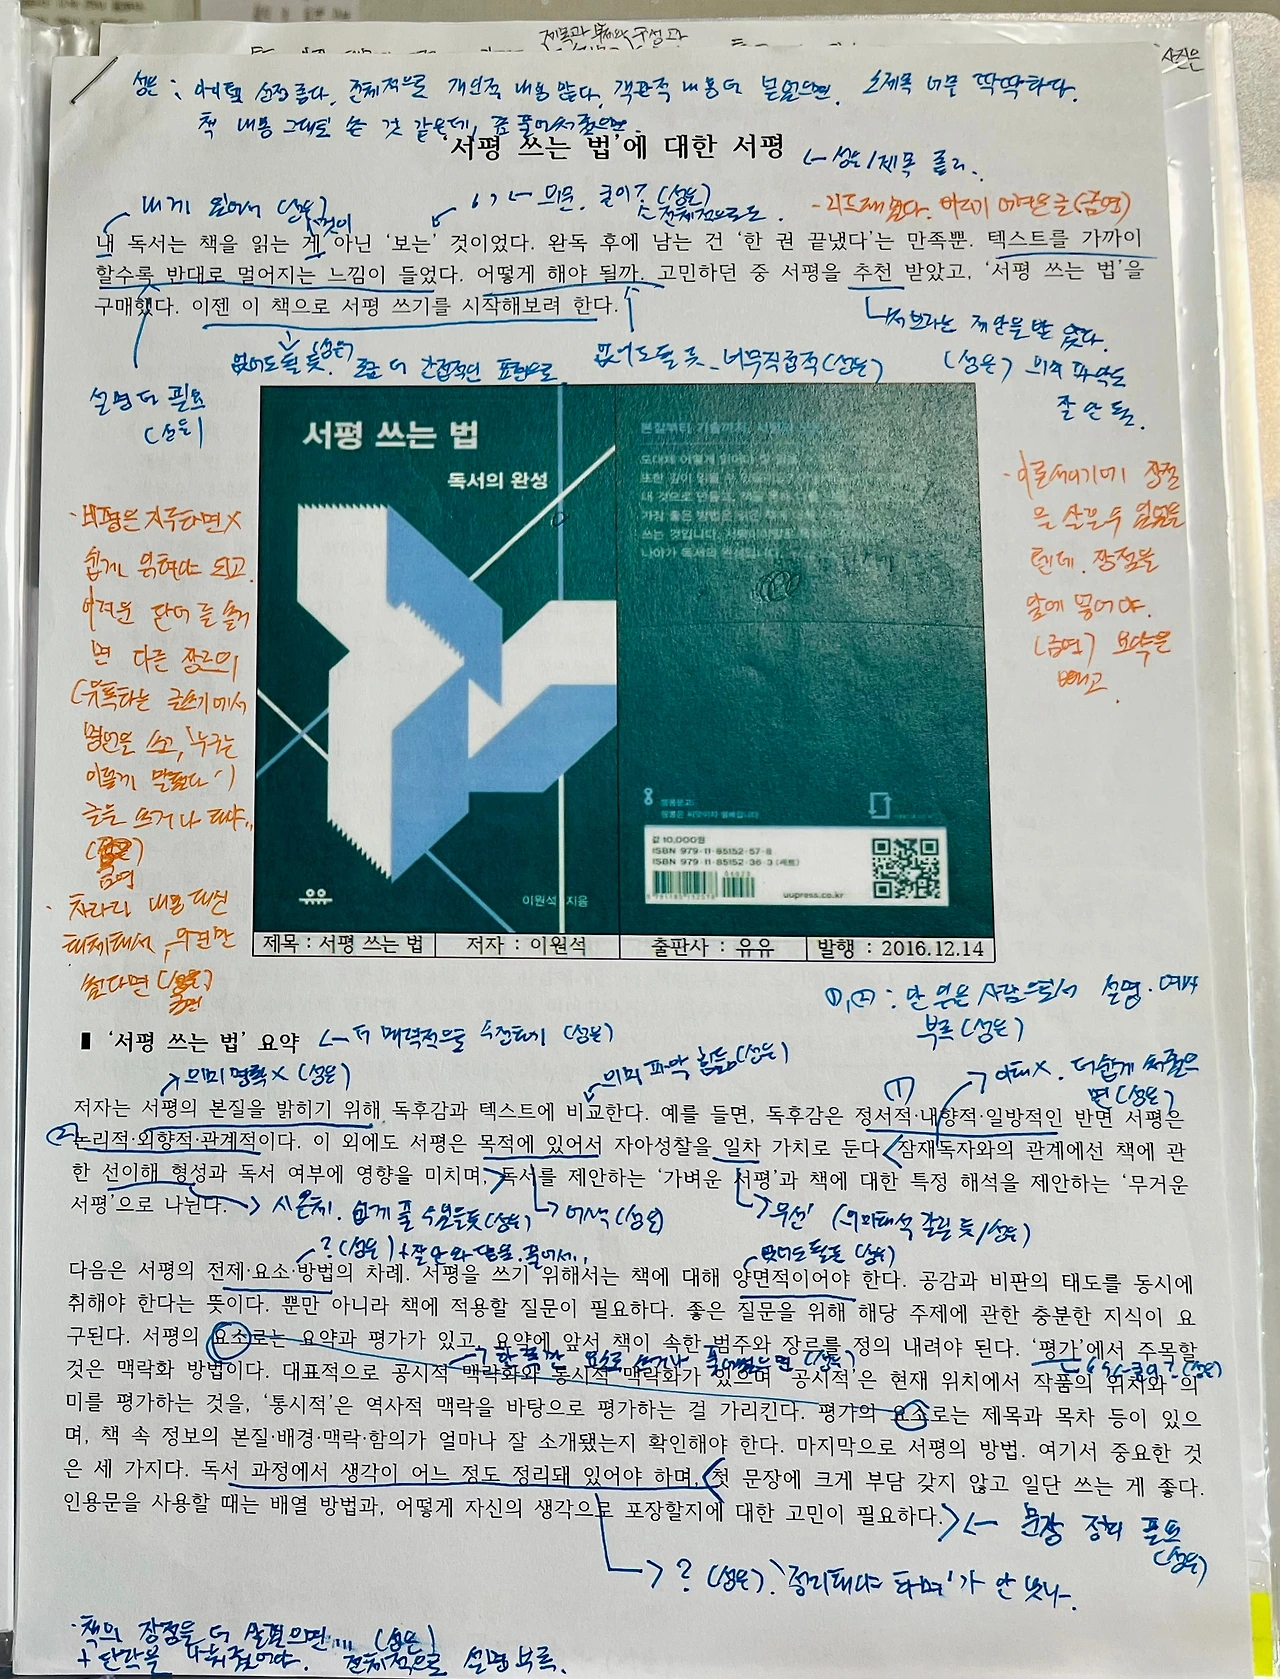 제목과 부제의 구성과
사진은
성은 : 어체 설정 좋다. 전체적으로 개인적 내용 많다. 객관적 내용 더 넣었으면. 소제목 너무 딱딱하다.
책 내용 그대로 쓴 것 같은데, 좀 풀어서 줬으면.
'서평 쓰는 법'에 대한 서평
← 성은/제목 흘리..
내게 있어서 (성은)
것이
' ' ← 의문. 굳이? (성은)
전체적으로도.
(금연)
내 독서는 책을 읽는 게 아닌 '보는' 것이었다. 완독 후에 남는 건 '한 권 끝냈다'는 만족뿐. 텍스트를 가까이
할수록 반대로 멀어지는 느낌이 들었다. 어떻게 해야 될까. 고민하던 중 서평을 추천 받았고, '서평 쓰는 법'을
구매했다. 이젠 이 책으로 서평 쓰기를 시작해보려 한다.
써보라는 제안을 받았다.
없어도 될 듯. (성은) 좀 더 간접적인 표현으로
없어도 될 듯 - 너무 직접적 (성은)
(성은) 의미 파악도
잘 안 됨.
설명 더 필요
(성은)
서평 쓰는 법
독서의 완성
본질부터 기술까지,
도대체 어떻게 읽어야
내 것으로 만들고,
가장 좋은 방법은
쓰는 것입니다.
나아가 독서의 완성입니다.
값 10,000원
ISBN 979-11-85152-57-8
ISBN 979-11-85152-36-3 (세트)
uupress.co.kr
유유
이원석 지음
제목 : 서평 쓰는 법 저자 : 이원석 출판사 : 유유 발행 : 2016.12.14
· 비평은 지루하면 X
쉽게 읽혀야 되고.
어려운 단어를 쓸거
면 다른 장르의
글쓰기에서
명언을 쓰고, '누구는
이렇게 말했다')
글을 쓰거나 해야..
금연
· 차라리 내용 대신
해체해서, 의견만
썼다면
금연
장점
을 살릴 수 있었을
텐데. 장점을
앞에 넣어야.
(금연) 요약을
빼고.
①, ② : 안 읽은 사람으로서 설명·예시
부족 (성은)
■ '서평 쓰는 법' 요약
← 더 매력적으로 수정하기 (성은)
의미 명확 X (성은)
의미 파악 힘듦 (성은)
①
이해 X. 더 쉽게 써줬으
면 (성은)
저자는 서평의 본질을 밝히기 위해 독후감과 텍스트에 비교한다. 예를 들면, 독후감은 정서적·내향적·일방적인 반면 서평은
②
논리적·외향적·관계적이다. 이 외에도 서평은 목적에 있어서 자아성찰을 일차 가치로 둔다. 잠재독자와의 관계에선 책에 관
한 선이해 형성과 독서 여부에 영향을 미치며, 독서를 제안하는 '가벼운 서평'과 책에 대한 특정 해석을 제안하는 '무거운
서평'으로 나뉜다.
쉽게 풀 수 있을 듯 (성은)
어색 (성은)
'우선' (의미 해석 갈릴 듯/성은)
? (성은) + 잘 안 와 닿음. 풀어서..
없어도 될 듯 (성은)
다음은 서평의 전제·요소·방법의 차례. 서평을 쓰기 위해서는 책에 대해 양면적이어야 한다. 공감과 비판의 태도를 동시에
취해야 한다는 뜻이다. 뿐만 아니라 책에 적용할 질문이 필요하다. 좋은 질문을 위해 해당 주제에 관한 충분한 지식이 요
구된다. 서평의 요소로는 요약과 평가가 있고, 요약에 앞서 책이 속한 범주와 장르를 정의 내려야 된다. '평가'에서 주목할
것은 맥락화 방법이다. 대표적으로 공시적 맥락화와 통시적 맥락화가 있으며 '공시적'은 현재 위치에서 작품의 위치와 의
미를 평가하는 것을, '통시적'은 역사적 맥락을 바탕으로 평가하는 걸 가리킨다. 평가의 요소로는 제목과 목차 등이 있으
며, 책 속 정보의 본질·배경·맥락·함의가 얼마나 잘 소개됐는지 확인해야 한다. 마지막으로 서평의 방법. 여기서 중요한 것
은 세 가지다. 독서 과정에서 생각이 어느 정도 정리돼 있어야 하며, 첫 문장에 크게 부담 갖지 않고 일단 쓰는 게 좋다.
인용문을 사용할 때는 배열 방법과, 어떻게 자신의 생각으로 포장할지에 대한 고민이 필요하다.
← 문장 정리 필요
(성은)
? (성은). '정리해야 하며'가 안 낫나.
· 책의 장점을 더 살렸으면.... (성은)
+ 단락을 나눠줬어야. 전체적으로 설명 부족.